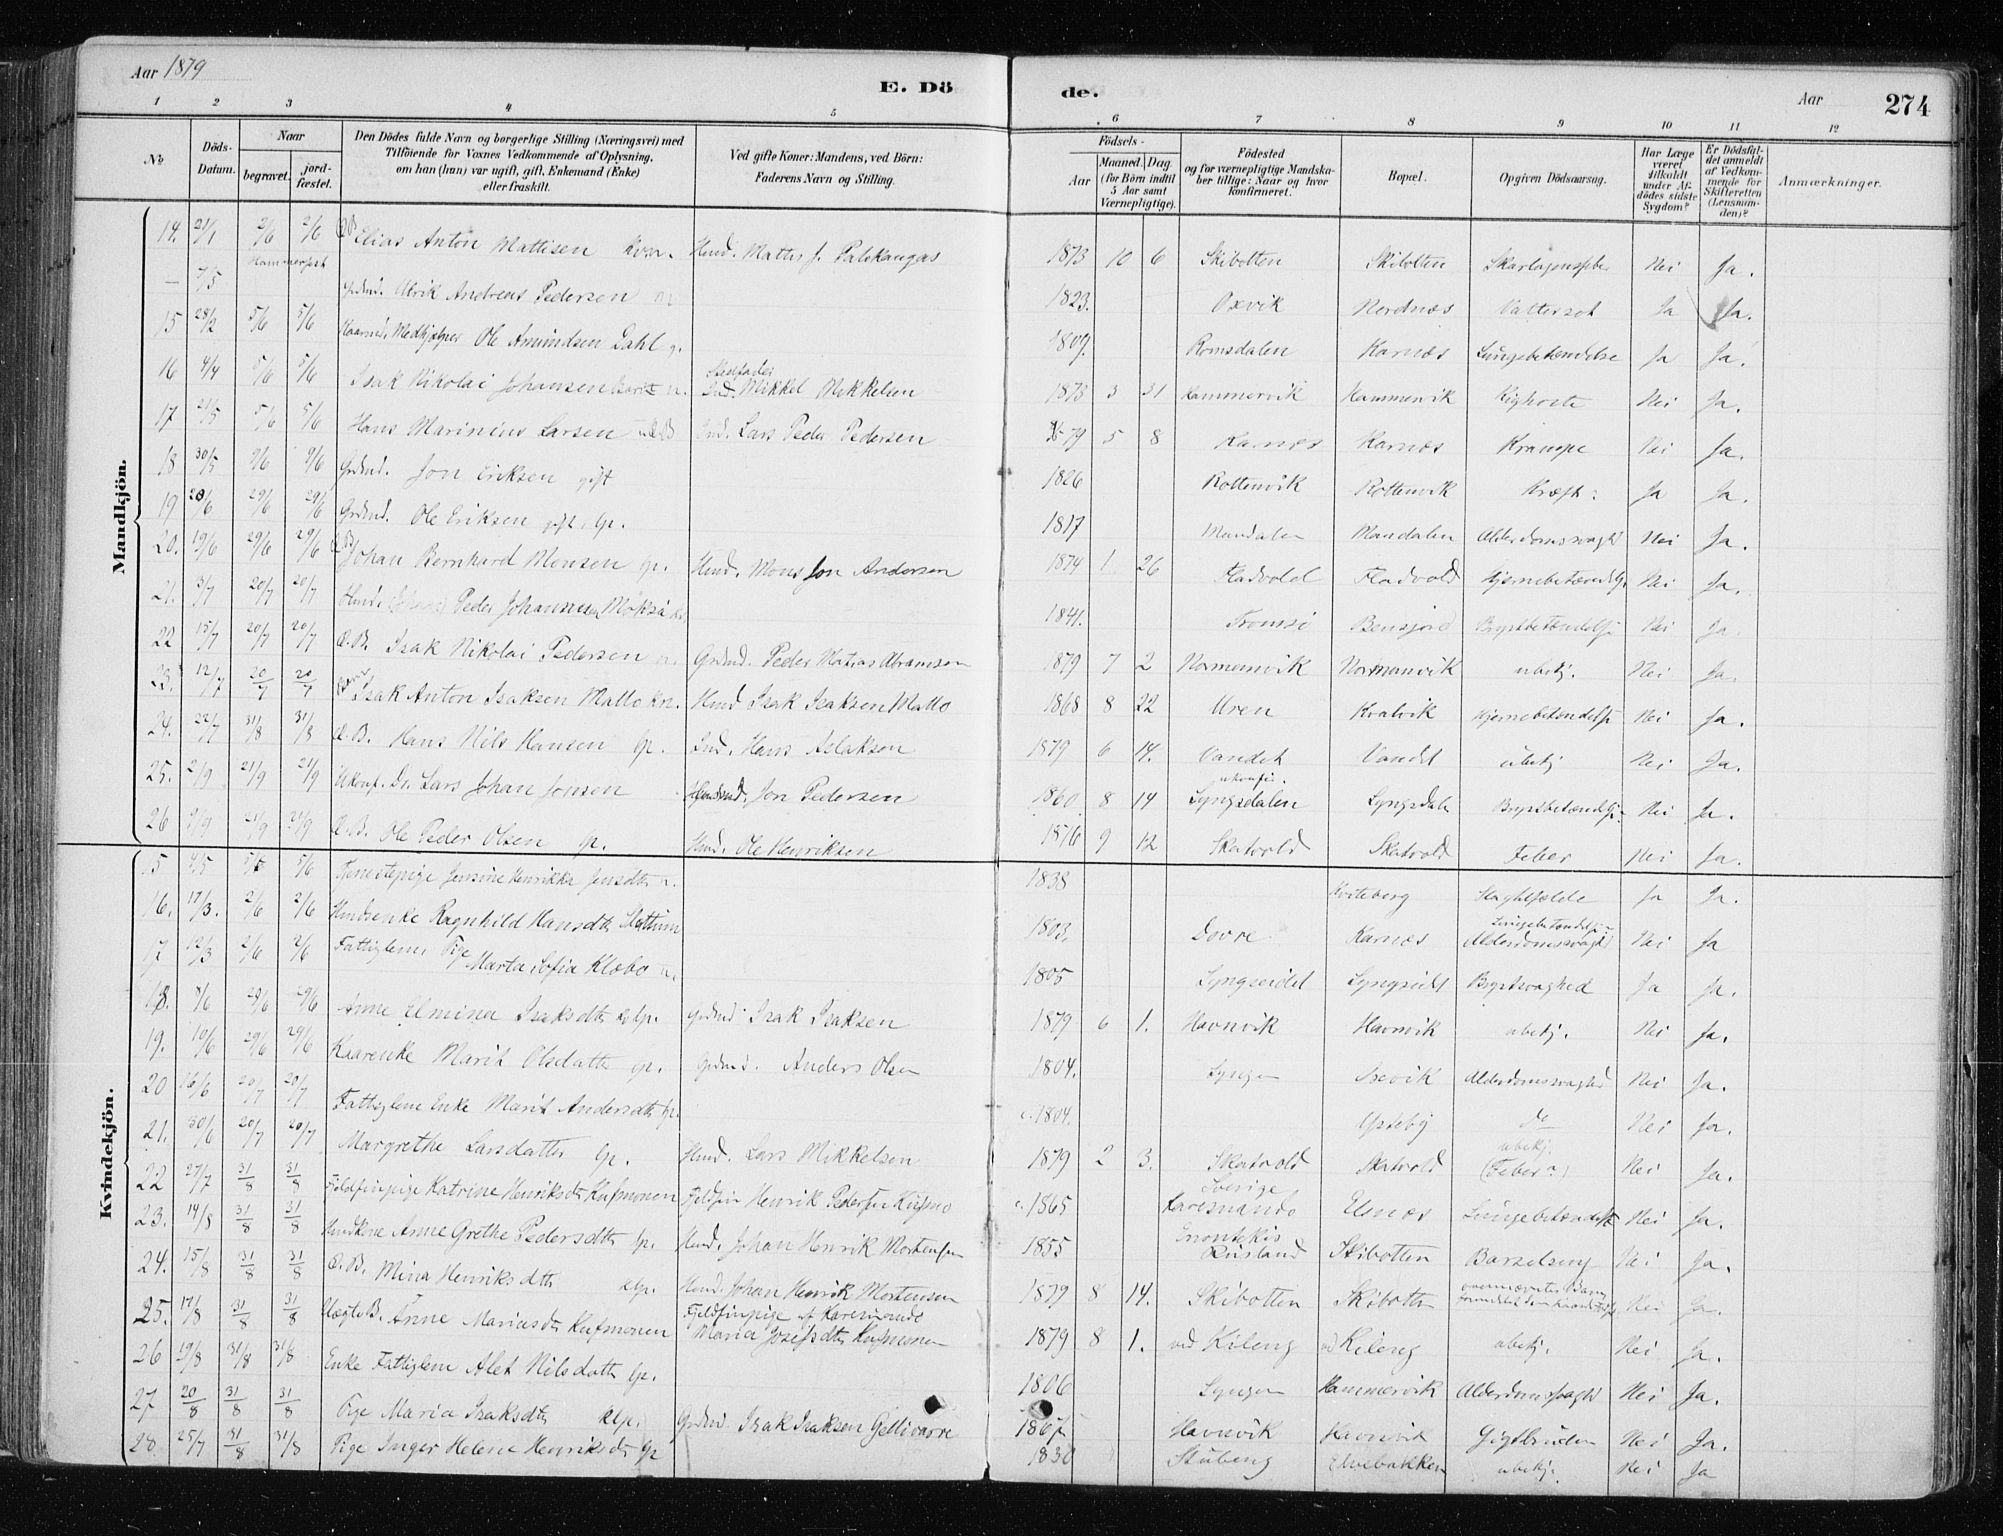 Aar 1879 E. Dö de. Aar 274
1 2 3 4 5 6 7 8 9 10 11 12
No Döds-Datum. Naar begravet. jord-fæstet. Den Dödes fulde Navn og borgerlige Stilling (Næringsvei) med Tilföiende for Voxnes Vedkommende af Oplysning, om han (hun) var ugift, gift, Enkemand (Enke) eller fraskilt. Ved gifte Koner: Mandens, ved Börn: Faderens Navn og Stilling. Födsels- Aar Maaned. Dag. (for Börn indtil 5 Aar samt Værnepligtige). Födested og for værnepligtige Mandskaber tillige: Naar og hvor konfirmeret. Bopæl. Opgiven Dödsaarsag. Har Læge været tilkaldt under Afdödes sidste Sygdom? Er Dödsfaldet anmeldt af Vedkommende for Skifteretten (Lensmanden)? Anmærkninger.
Mandkjön.
14. 21/1 2/6 2/6 Elias Anton Mattisen kvæn. Huusd. Mattis J. Palokangas 1873 10 6 Skibotten Skibotten Skarlagensfeber Nei Ja.
— 7/5 Hammerfest Grdmd. Ulrik Andreas Pedersen n. 1823. Oxvik Nordnæs Vattersot Ja Ja.
15 28/2 5/6 5/6 Kaarmd. Medhjælper Ole Amundsen Dahl g. 1809. Romsdalen Karnæs Lungebetændelse Ja Ja.
16 4/4 5/6 5/6 Isak Nikolai Johansen n. Stedfader Ind. Mikkel Mikkelsen 1873 3 31 Kammervik Kammervik Kighoste Nei Ja.
17 21/5 5/6 5/6 Hans Marinius Larsen Ind. Lars Peder Pedersen 79 5 8 Karnæs Karnæs Krampe Nei Ja.
18 30/5 9/6 9/6 Grdmd. Jon Eriksen gift 1826 Rottenvik Rottenvik Kræft Ja Ja.
19 20/6 29/6 29/6 Grdmd. Ole Eriksen gift. lp. 1817 Mandalen Mandalen Alderdomssvaghd Nei Ja.
20. 19/6 29/6 29/6 Johan Bernhard Monsen lp. Husd. Mons Jon Andersen 1874 1 26 Fladvold Fladvold Hjernebetændelse Nei Ja.
21. 3/7 20/7 20/7 Husd. Peder Johannsen 1841. Tromsö Bensjord Brystbetændelse Nei Ja.
22 15/7 20/7 20/7 Æ.B. Isak Nikolai Pedersen n. Grdmd. Peder Matias Abramsen 1879 7 2 Normanvik Normanvik ubekj. Nei Ja.
23. 12/7 20/7 20/7 Isak Anton Isaksen Mallo kn. Husd Isak Isaksen Mallo 1868 8 22 Uren Kvalvik Hjernebetændelse Nei Ja.
24. 22/7 31/8 31/8 Æ.B. Hans Nils Hansen lp. Ind. Hans Aslaksen 1879 6 14. Vandet Vandet ubekj Nei Ja.
25. 2/9 21/9 21/9 Ukonf. Dr. Lars Johan Jonsen Husmd. Jon Pedersen 1860 8 14 ukonfi. Lyngsdalen Lyngsdaln Brystbetændelse Nei Ja.
26 9/9 21/9 21/9 Æ.B. Ole Peder Olsen lp. Husd. Ole Henriksen 1876 9 12 Skatvold Skatvold Feber Nei Ja.
Kvindekjön.
15 4/5 5/6 5/6 Tjenestepige Jensine Henrikke Jensdtr n. 1838 Kviteberg Ja Ja.
16. 17/3. 2/6 2/6 Husdsenke Ragnhild Hansdtr 1803. Dovre Karnæs Lungebetændelse Alderdomssvaghd Nei Ja
17 12/3 2/6 2/6 Fattiglem, Pige Marta Sofia Klæbo n. 1805 Lyngseidet Lyngseidet Brystsvaghed Ja Ja.
18. 8/6 29/6 29/6 Anne Elmina Isaksdtr lp. Grdmd Isak Isaksen 1879 6 1. Havnvik Havnvik ubekj. Nei Ja.
19. 10/6 29/6 29/6 Kaarenke Marit Olsdatter lp. Grdmd. Anders Olsen 1804. Lyngen Alderdomssvaghd Nei Ja.
20 16/6 20/7 20/7 Fattiglem Enke Marit Andersdtr lp. c. 1804. Ysteby do Nei Ja.
21. 30/6 20/7 20/7 Margrethe Larsdatter lp. Husd. Lars Mikkelsen 1879 2 3. Skatvold Skatvold ubekj. (Feber?) Nei Ja.
22 27/7 31/8 31/8 Fjeldfinpige Katrine Henriksdtr Kufmonen Fjeldfin Henrik Pedersen c. 1865 Sverige Karesuando Elsnæs Lungebetændelse Nei Ja.
23. 14/8 31/8 31/8 Husdkone Anne Grethe Pedersdtr lp. Husd. Johan Henrik Mortensen 1855 Enontekis Rusland Skibotten Barselseng Nei Ja.
24. 15/8 31/8 31/8 Æ.B. Mina Henriksdtr lp. Husd. Johan Henrik Mortensen 1879 8 14. Skibotten Skibotten Nei Ja.
25. 17/8 31/8 31/8 Uægte B. Anne Mariasdtr Kufmonen Fjeldfinpige af Karesuando Maria Josefsdtr Kufmonen 1879 8 1. ved Kileng vd Kileng ubekj. Nei Ja.
26 19/8 31/8 31/8 Enke Fattiglem Alet Nilsdatter lp. 1806 Lyngen Kammervik Alderdomssvaghd Nei Ja.
27 20/8 31/8 31/8 Pige Maria Isaksdtr lp. Grdmd. Isak Isaksen Gellivarre 1867 Havnvik Havnvik Gigtbruden Nei Ja.
28. 25/7 31/8 31/8 Pige Inger Helene Henriksdtr lp 1830 Stubeng Elvebakken ubekj. Nei Ja